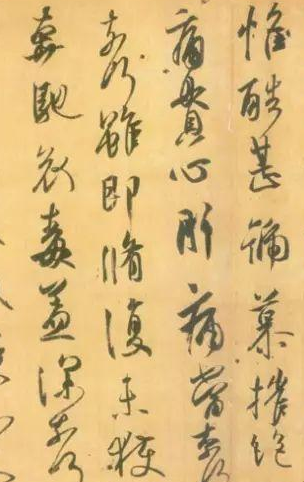 惟酷甚號慕摧絶
痛貫心肝痛當奈何
奈何雖即脩復未獲
奔馳哀毒益深奈何